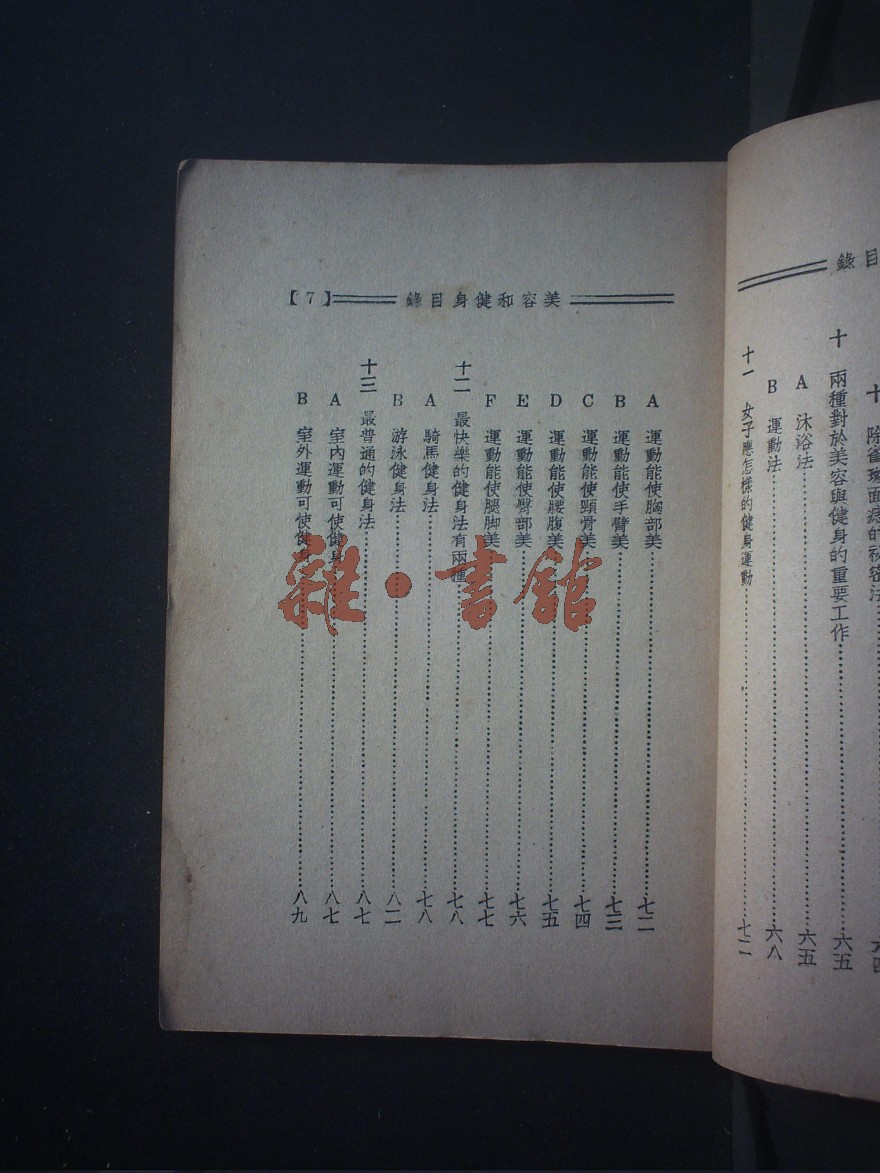 錄目
十 除雀斑面痣的秘密法……六四
十 兩種對於美容與健身的重要工作……六五
A 沐浴法……六五
B 運動法……六八
十一 女子應怎樣的健身運動……七二
美容和健身目錄【7】
A 運動能使胸部美……七二
B 運動能使手臂美……七三
C 運動能使頸骨美……七四
D 運動能使腰腹美……七五
E 運動能使臀部美……七六
F 運動能使腿脚美……七七
十二 最快樂的健身法有兩種……七八
A 騎馬健身法……七八
B 游泳健身法……八二
十三 最普通的健身法……八七
A 室內運動可使健身……八七
B 室外運動可使健身……八九
雜·書館